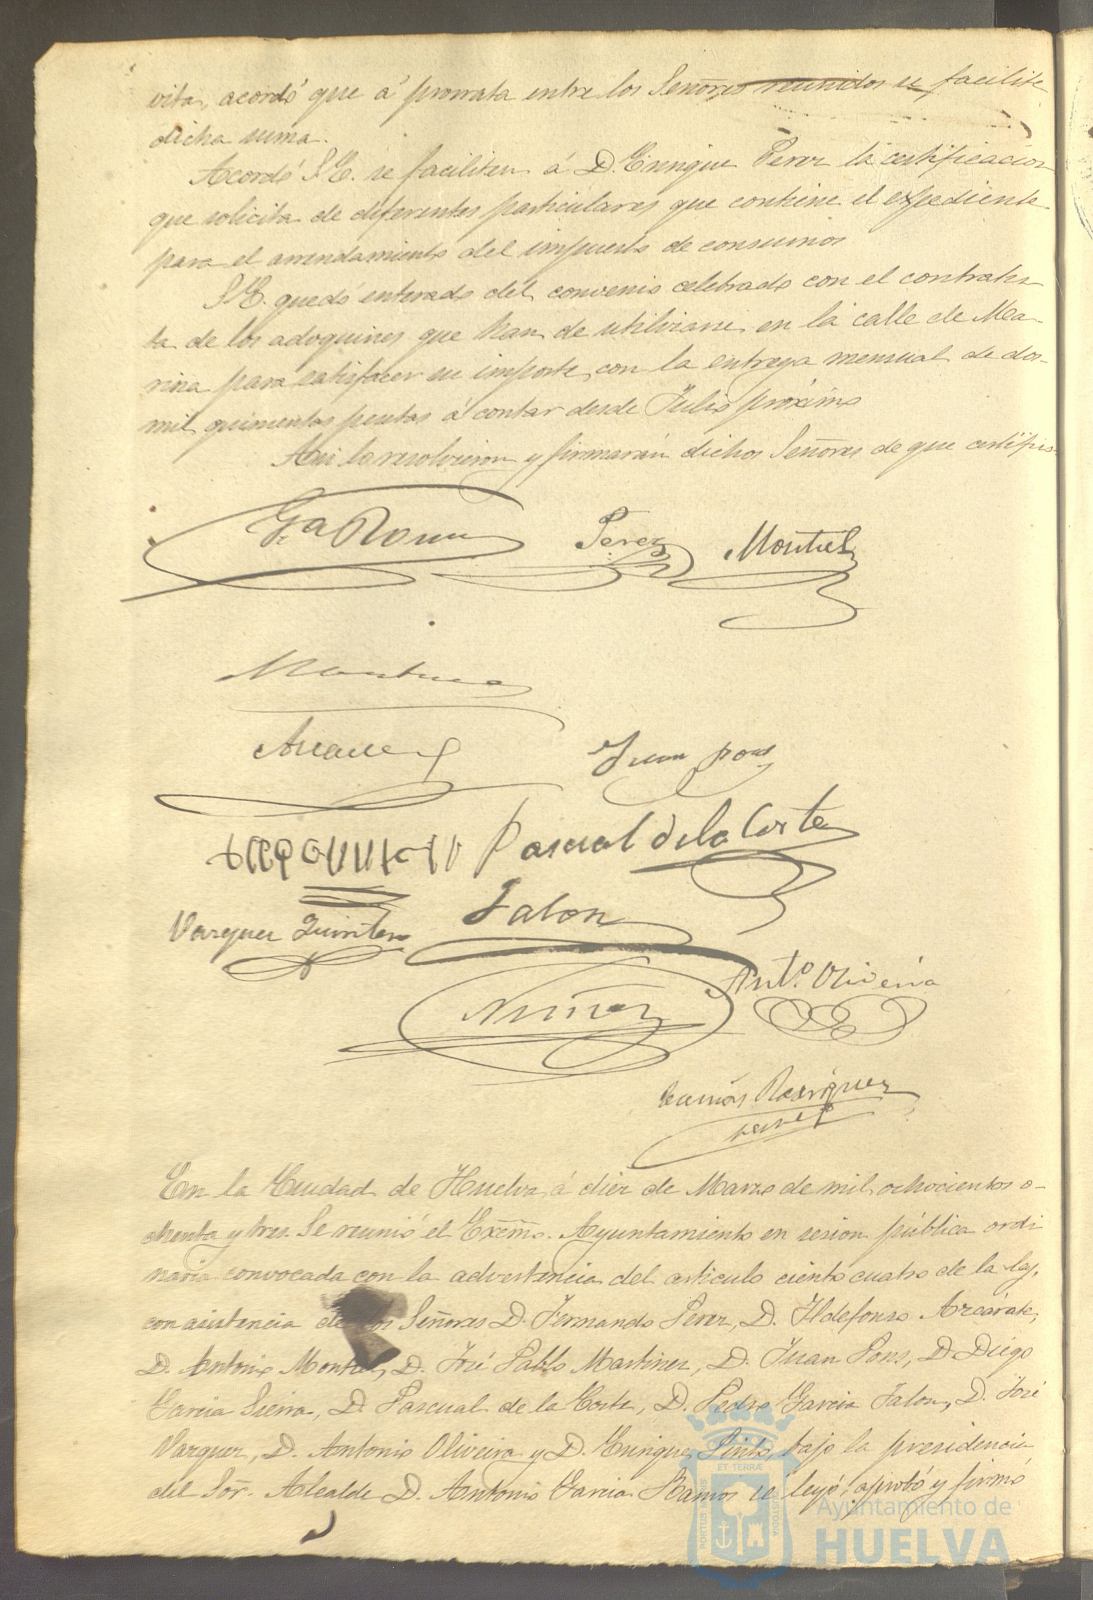 vita, acordó que á prorrata entre los Señores reunidos se facilite
dicha suma.
Acordó S.E. se faciliten á D. Enrique Perez la certificacion
que solicita de diferentes particulares que contiene el expediente
para el arrendamiento del impuesto de consumos
S.E. quedó enterado del convenio celebrado con el contratis
ta de los adoquines que han de utilizarse en la calle de Ma-
rina para satisfacer su importe, con la entrega mensual de dos
mil quinientas pesetas á contar desde Julio próximo
Asi lo resolvieron y firmarán dichos Señores de que certifico
Ga Ramos Perez Montiel
Martinez
Azcarate Juan Pons
Pascual de la Corte
Vazquez Quintero Jalon
Anto. Oliveira
Nuñez
Ramós Rodriguez
En la Ciudad de Huelva á diez de Marzo de mil ochocientos o-
chenta y tres. Se reunió el Excmo. Ayuntamiento en sesion pública ordi
naria convocada con la advertencia del articulo ciento cuatro de la ley,
con asistencia de los Señores D. Fernando Perez, D. Ildefonso Azcárate,
D. Antonio Montiel, D. José Pablo Martinez, D. Juan Pons, D. Diego
Garcia Sierra, D. Pascual de la Corte, D. Pedro Garcia Jalon, D. José
Vazquez, D. Antonio Oliveira y D. Enrique Pinto, bajo la presidencia
del Sor. Alcalde D. Antonio Garcia Ramos se leyó, aprobó y firmó
Ayuntamiento de
HUELVA